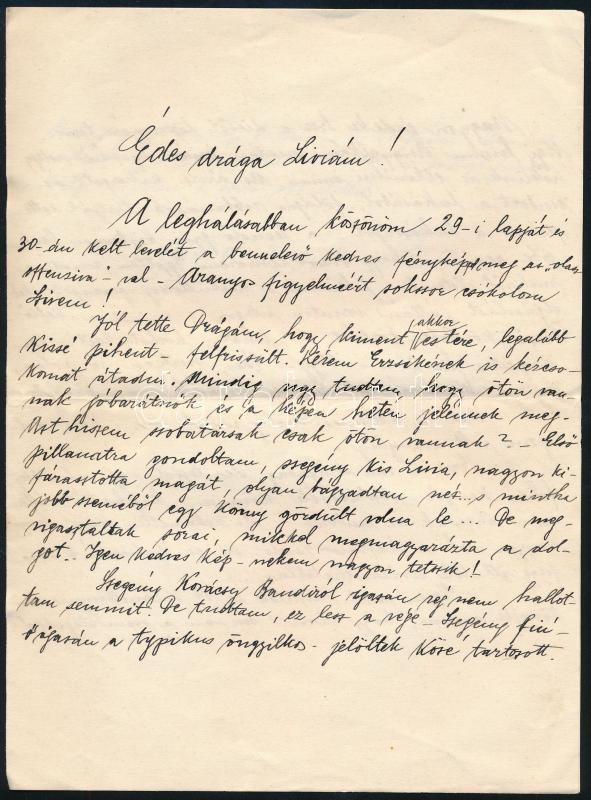 Édes drága Liviám!
A leghálásabban köszönöm 29-i lapját és
30-án kelt levelét a bennelévő kedves fényképpel meg az „olasz
offenziva"-val - Aranyos figyelméért sokszor csókolom
Szivem!
Jól tette Drágám, hogy kiment akkor estére, legalább
kissé pihent - felfrissült. Kérem Erzsikének is kézcsó-
komat átadni. Mindig úgy tudtam hogy öten van-
nak jóbarátnők és a képen heten jelennek meg -
Azt hiszem szobatársak csak öten vannak? - Első
pillanatra gondoltam, szegény kis Livia, nagyon ki-
fárasztotta magát, olyan bágyadtan néz... s mintha
jobb szeméből egy könny gördült volna le... De meg-
vigasztaltak sorai, mikkel megmagyarázta a dol-
got.. Igen kedves kép - nekem nagyon tetszik!
Szegény Korácsy Bandiról igazán rég nem hallot-
tam semmit. De tudtam, ez lesz a vége - Szegény fiú -
Ő igazán a typikus öngyilkos - jelöltek közé tartozott.